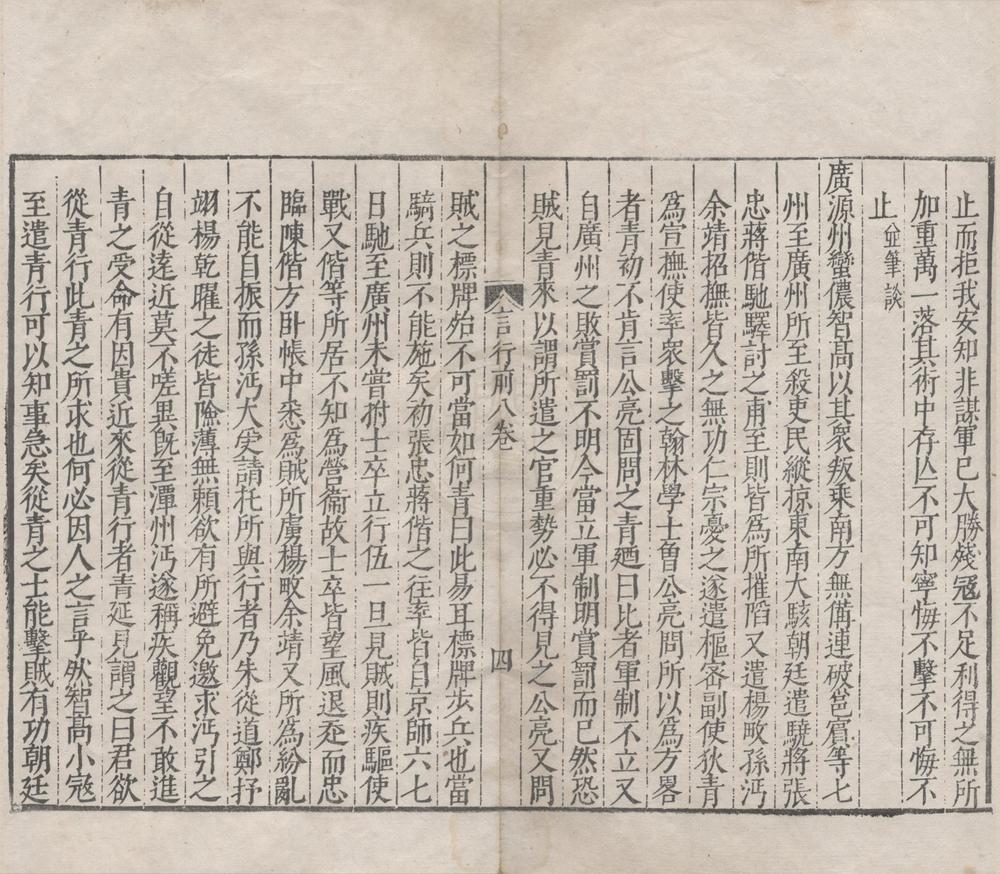 止而拒我安知非謀軍已大勝殘寇不足利得之無所
加重萬一落其術中存亾不可知寧悔不擊不可悔不
止並筆談
廣源州蠻儂智高以其衆叛乘南方無備連破邕賔等七
州至廣州所至殺吏民縱掠東南大駭朝廷遣驍將張
忠蔣偕馳驛討之甫至則皆爲所摧陷又遣楊畋孫沔
余靖招撫皆久之無功仁宗憂之遂遣樞密副使狄青
爲宣撫使率衆擊之翰林學士曾公亮問所以爲方畧
者青初不肯言公亮固問之青廼曰比者軍制不立又
自廣州之敗賞罰不明今當立軍制明賞罰而已然恐
賊見青來以謂所遣之官重勢必不得見之公亮又問
言行前八卷 四
賊之標牌殆不可當如何青曰此易耳標牌步兵也當
騎兵則不能施矣初張忠蔣偕之往率皆自京師六七
日馳至廣州未嘗拊士卒立行伍一旦見賊則疾驅使
戰又偕等所居不知爲營衞故士卒皆望風退走而忠
臨陳偕方卧帳中悉爲賊所虜楊畋余靖又所爲紛亂
不能自振而孫沔大受請托所與行者乃朱從道鄭抒
翊楊乾曜之徒皆險薄無賴欲有所避免邀求沔引之
自從逺近莫不嗟異旣至潭州沔遂稱疾觀望不敢進
青之受命有因貴近來從青行者青延見謂之曰君欲
從青行此青之所求也何必因人之言乎然智高小寇
至遣青行可以知事急矣從青之士能擊賊有功朝廷